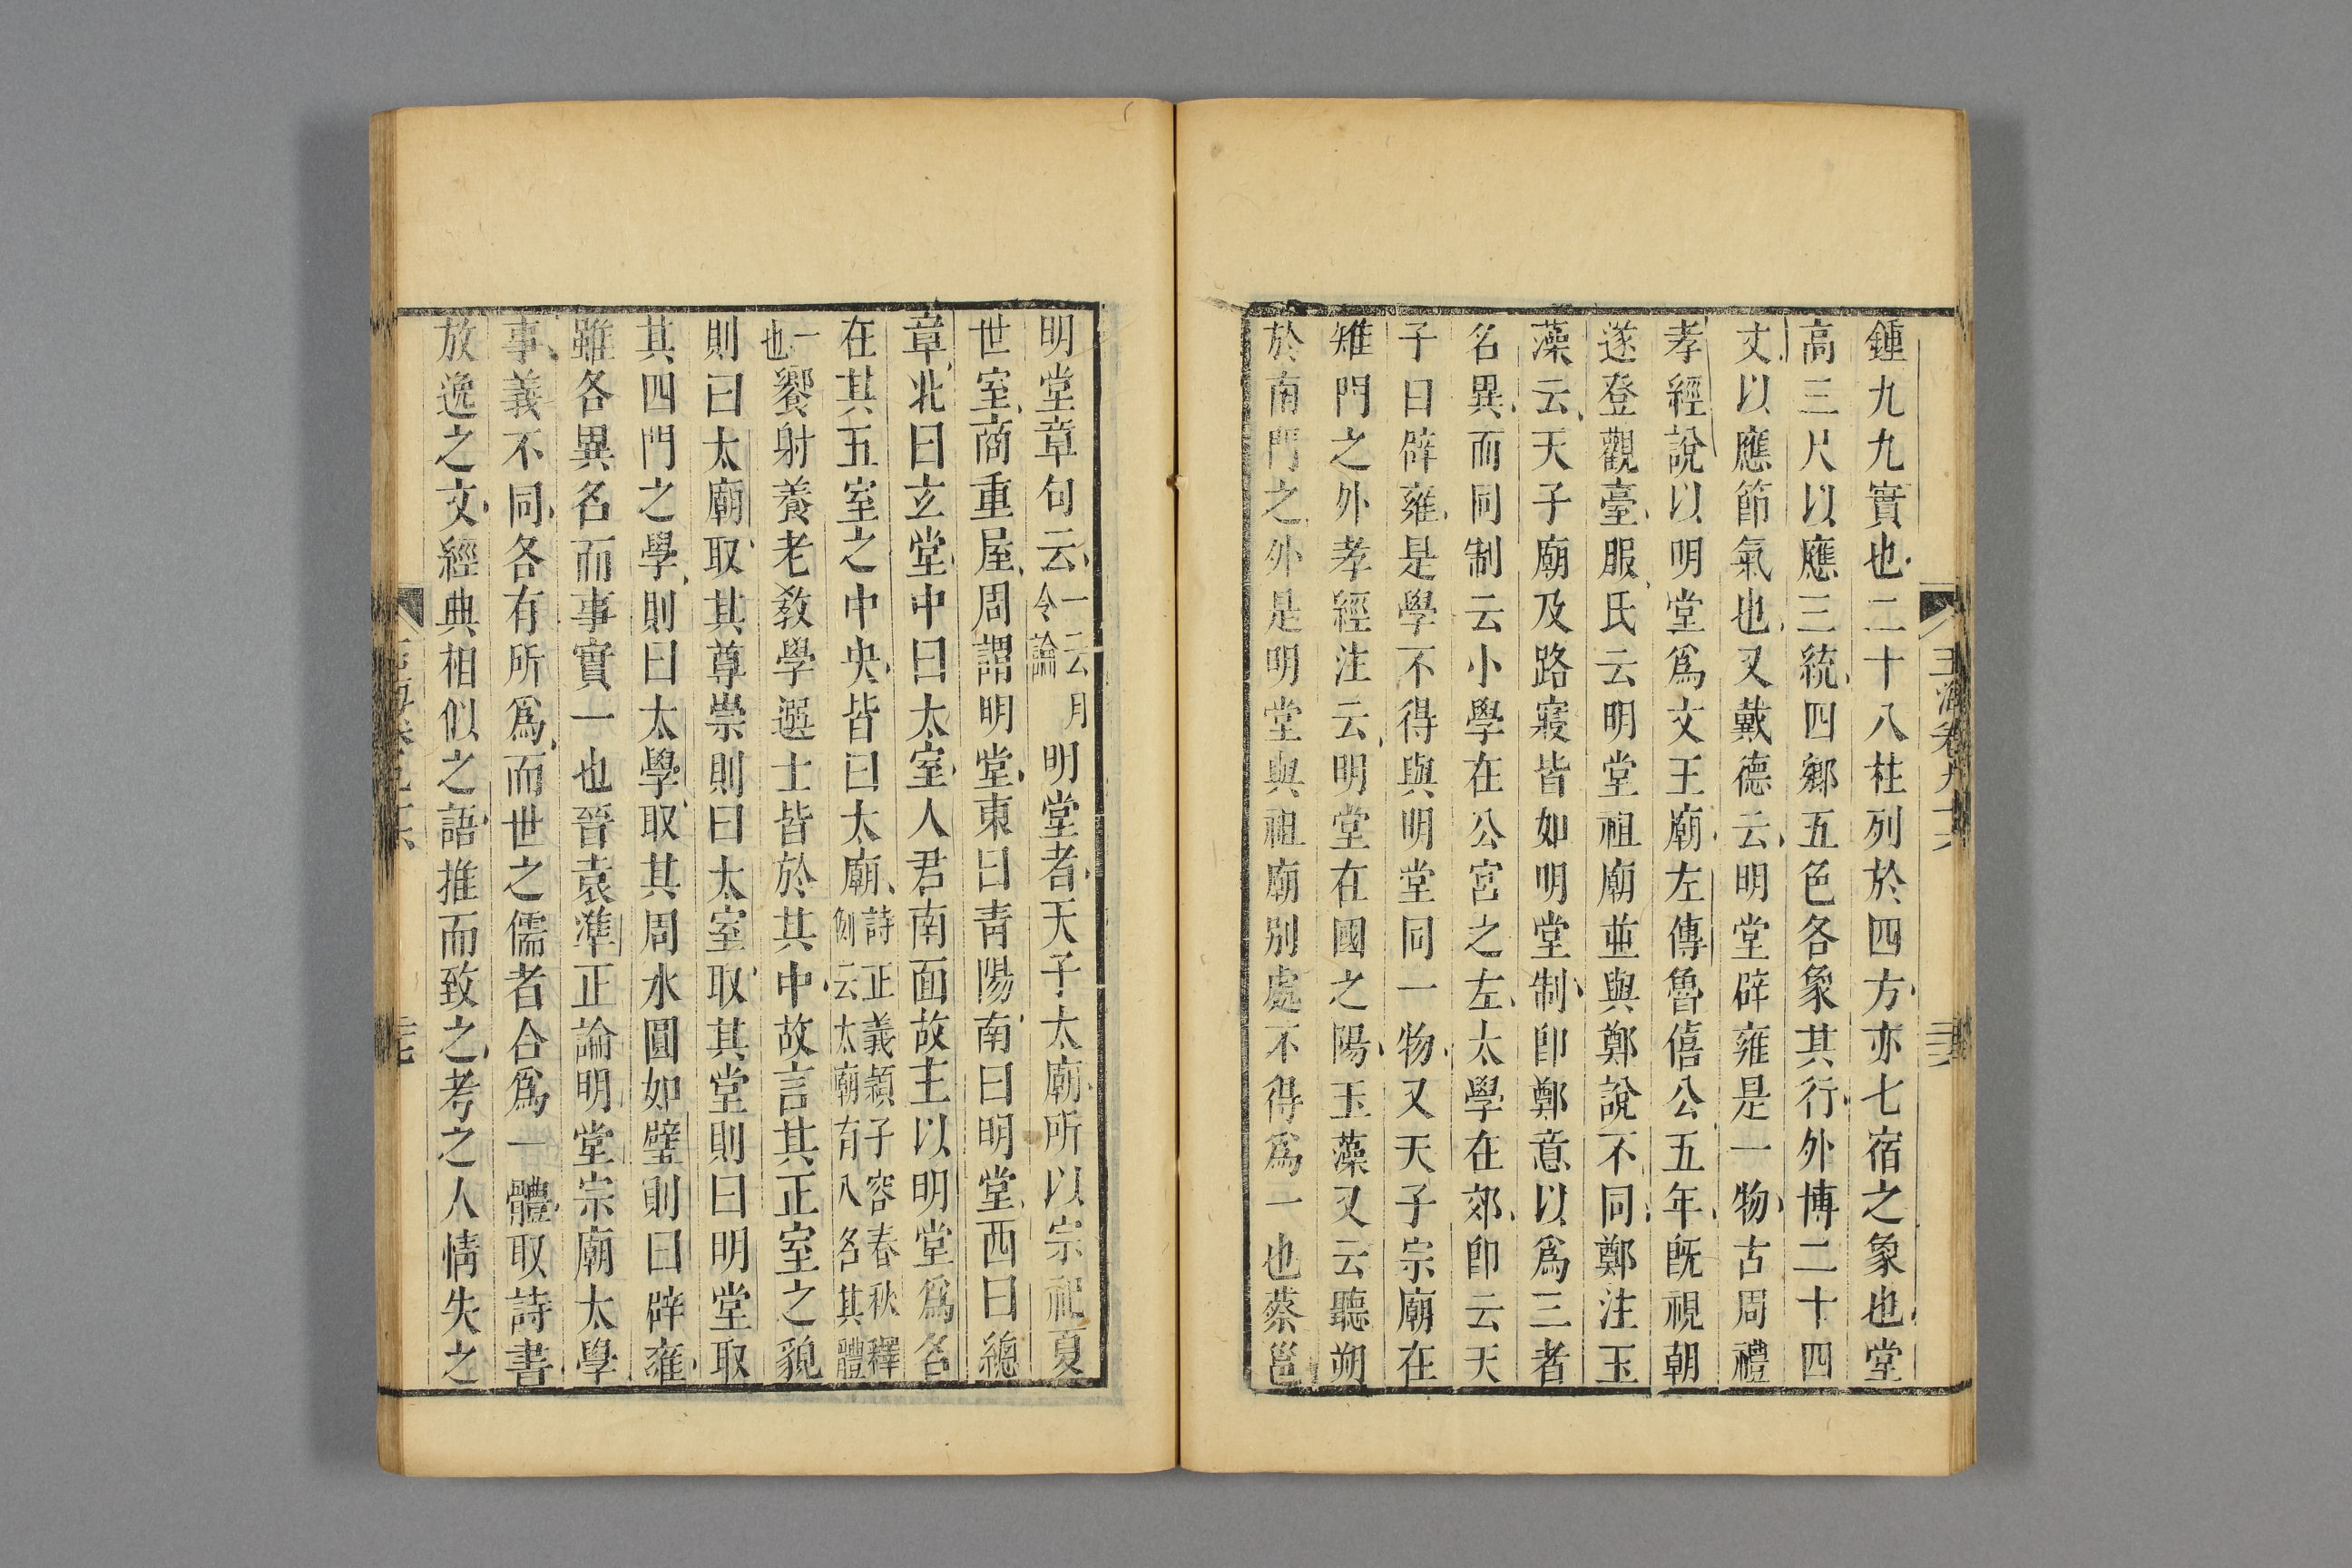 鍾九九實也二十八柱列於四方亦七宿之象也堂
高三尺以應三統四鄉五色各象其行外博二十四
丈以應節氣也又戴德云明堂辟雍是一物古周禮
孝經說以明堂爲文王廟左傳魯僖公五年旣視朝
遂登觀臺服氏云明堂祖廟並與鄭說不同鄭注玉
藻云天子廟及路寢皆如明堂制卽鄭意以爲三者
名異而同制云小學在公宮之左太學在郊卽云天
子曰辟雍是學不得與明堂同一物又天子宗廟在
雉門之外孝經注云明堂在國之陽玉藻又云聽朔
於南門之外是明堂與祖廟別處不得爲一也蔡邕
明堂章句云一云月令論明堂者天子太廟所以宗祀夏
世室商重屋周謂明堂東曰青陽南曰明堂西曰總
章北曰玄堂中曰太室人君南面故主以明堂爲名
在其五室之中央皆曰太廟詩正義穎子容春秋釋例云太廟有八名其體
一也饗射養老敎學選士皆於其中故言其正室之貌
則曰太廟取其尊崇則曰太室取其堂則曰明堂取
其四門之學則曰太學取其周水圓如璧則曰辟雍
雖各異名而事實一也晉袁準正論明堂宗廟太學
事義不同各有所爲而世之儒者合爲一體取詩書
放逸之文經典相似之語推而致之考之人情失之